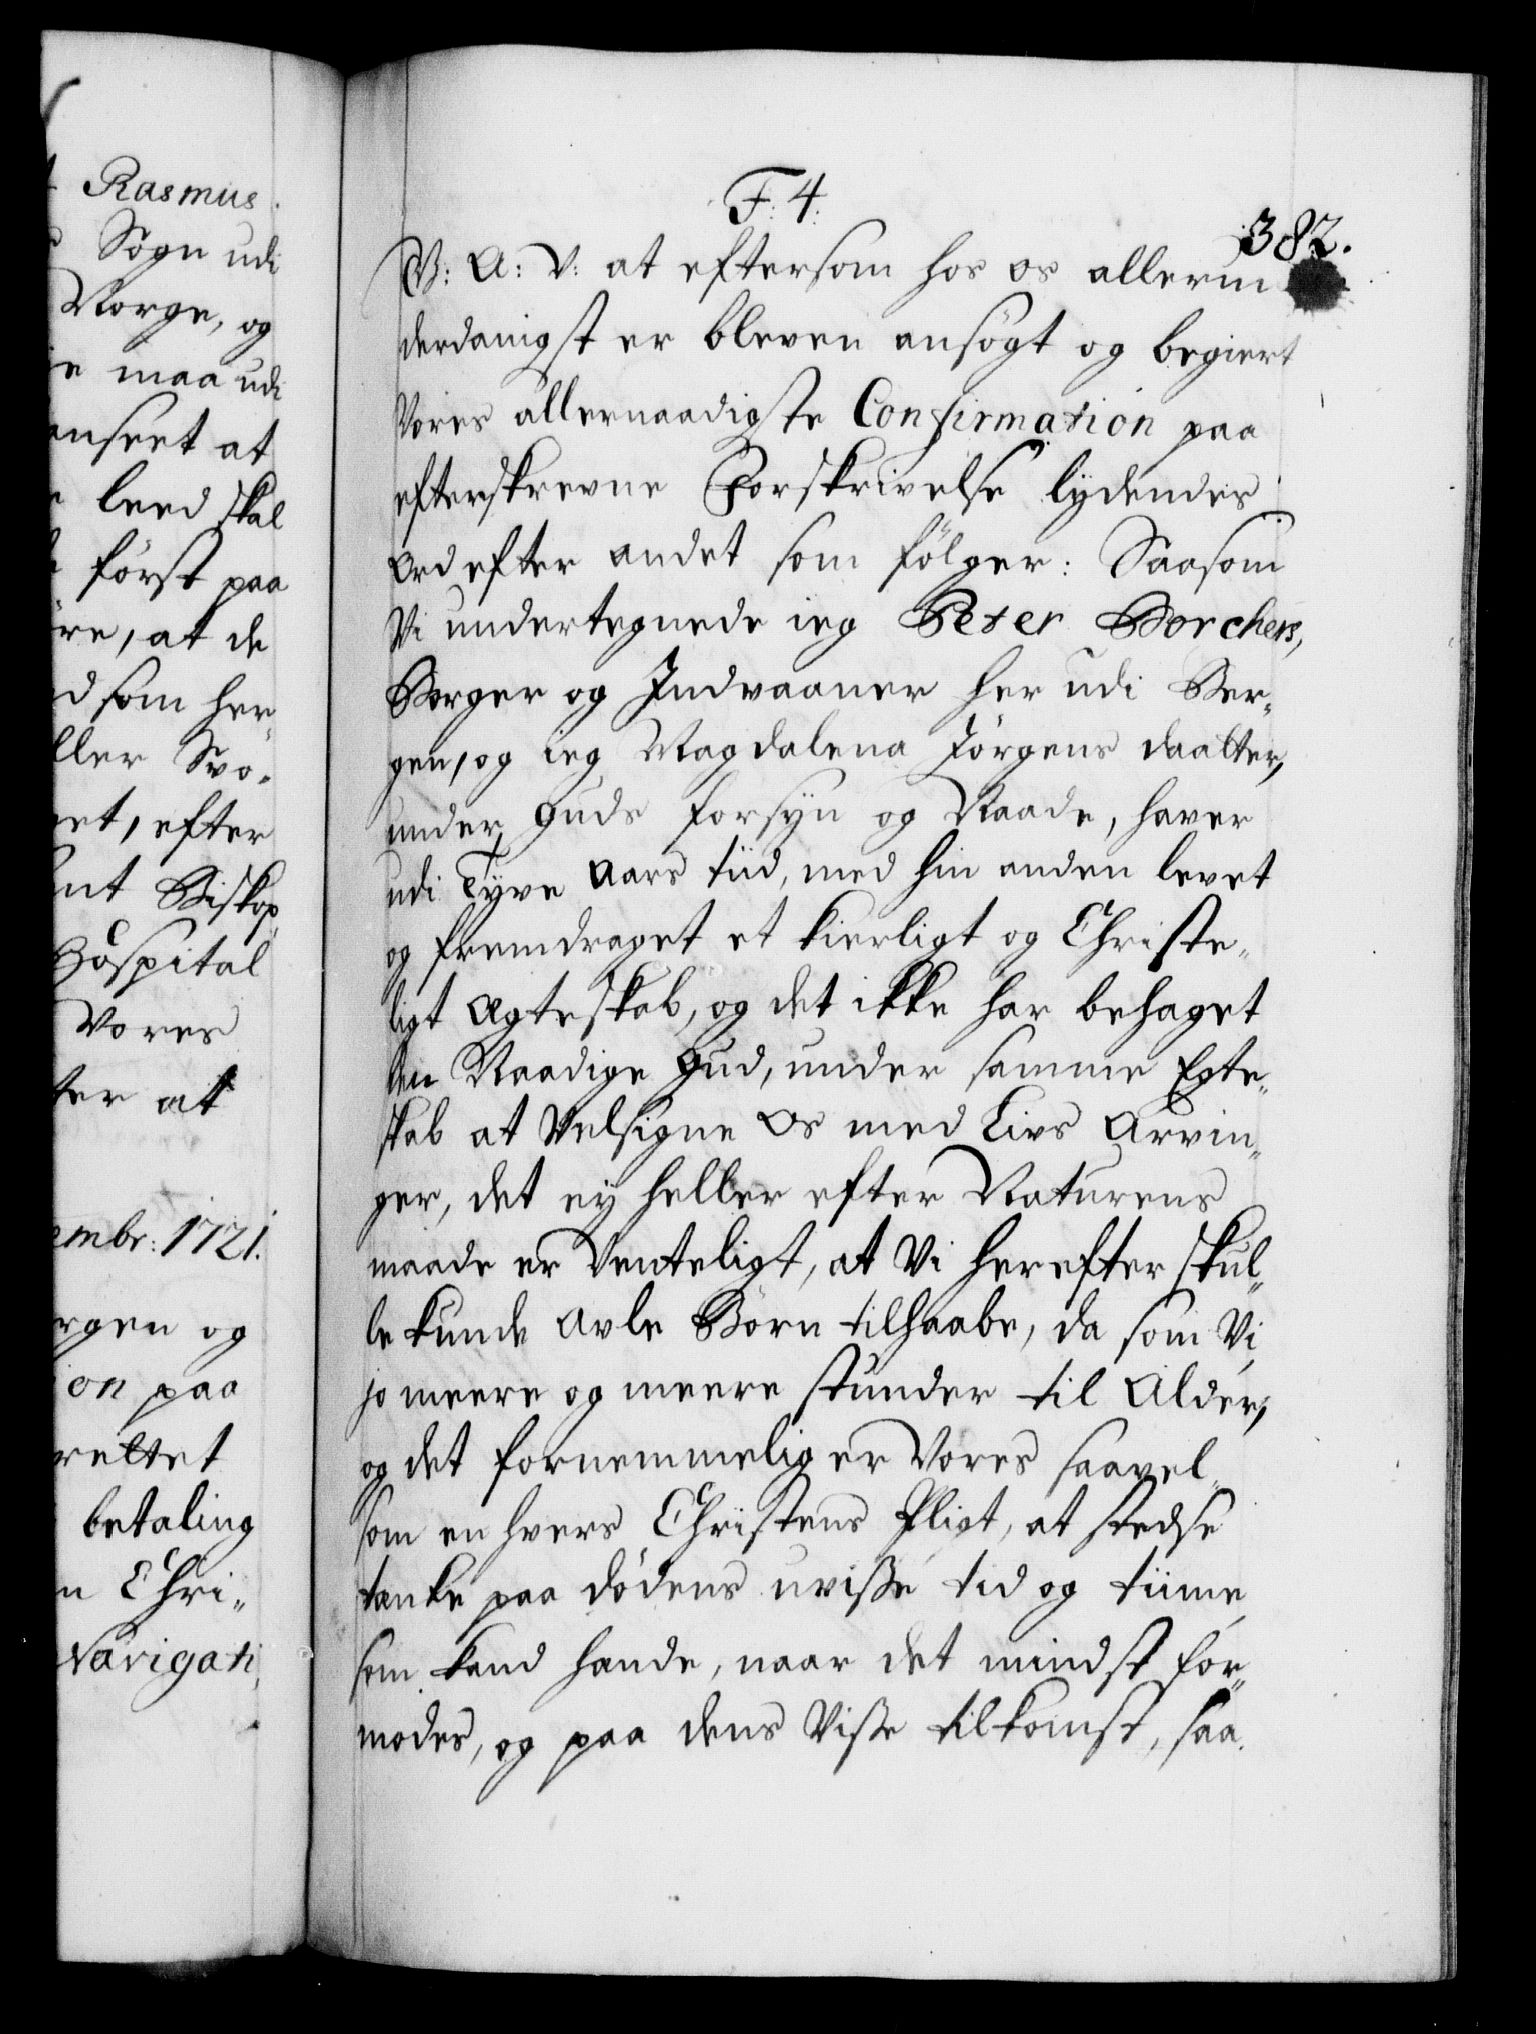 Rasmus
Sogn udi
Norge, og
maa udi
anseet at
leed skal
först paa
re, at de
d som her
ller Svo-
et, efter
nt Biskop
Hospital
Vores
ter at
embr: 1721.
rgen og
ion paa
rettet
betaling
n Chri-
Navigati
F: 4:
382.
V: A: V: at eftersom hos os allerun
derdanigst er bleven ansögt og begiert
Vores allernaadigste Confirmation paa
efterskrevne Forskrivelse lydendes
Ord efter andet som fölger: Saasom
Vi undertegnede ieg Peter Borchers,
Borger og Indvaaner her udi Ber-
gen, og ieg Magdalena Jörgens daatter,
under Guds forsyn og Naade, haver
udi Tyve Aars tiid, med hin anden levet
og fremdraget et kierligt og Christe-
ligt Ægteskab, og det ikke har behaget
den Naadige Gud, under samme Egte-
skab at Velsigne Os med Livs Arvin-
ger, det ey heller efter Naturens
maade er Venteligt, at Vi herefter skul-
le kunde avle Börn tilhaabe, da som Vi
jo meere og meere stunder til Alder,
og det fornemmelig er Vores saavel-
som en hvers Christens Pligt, at stedse
tænke paa dödens uvisse tid og tiime
som kand hænde, naar det mindst for-
modes, og paa dens Visse tilkomst, saa